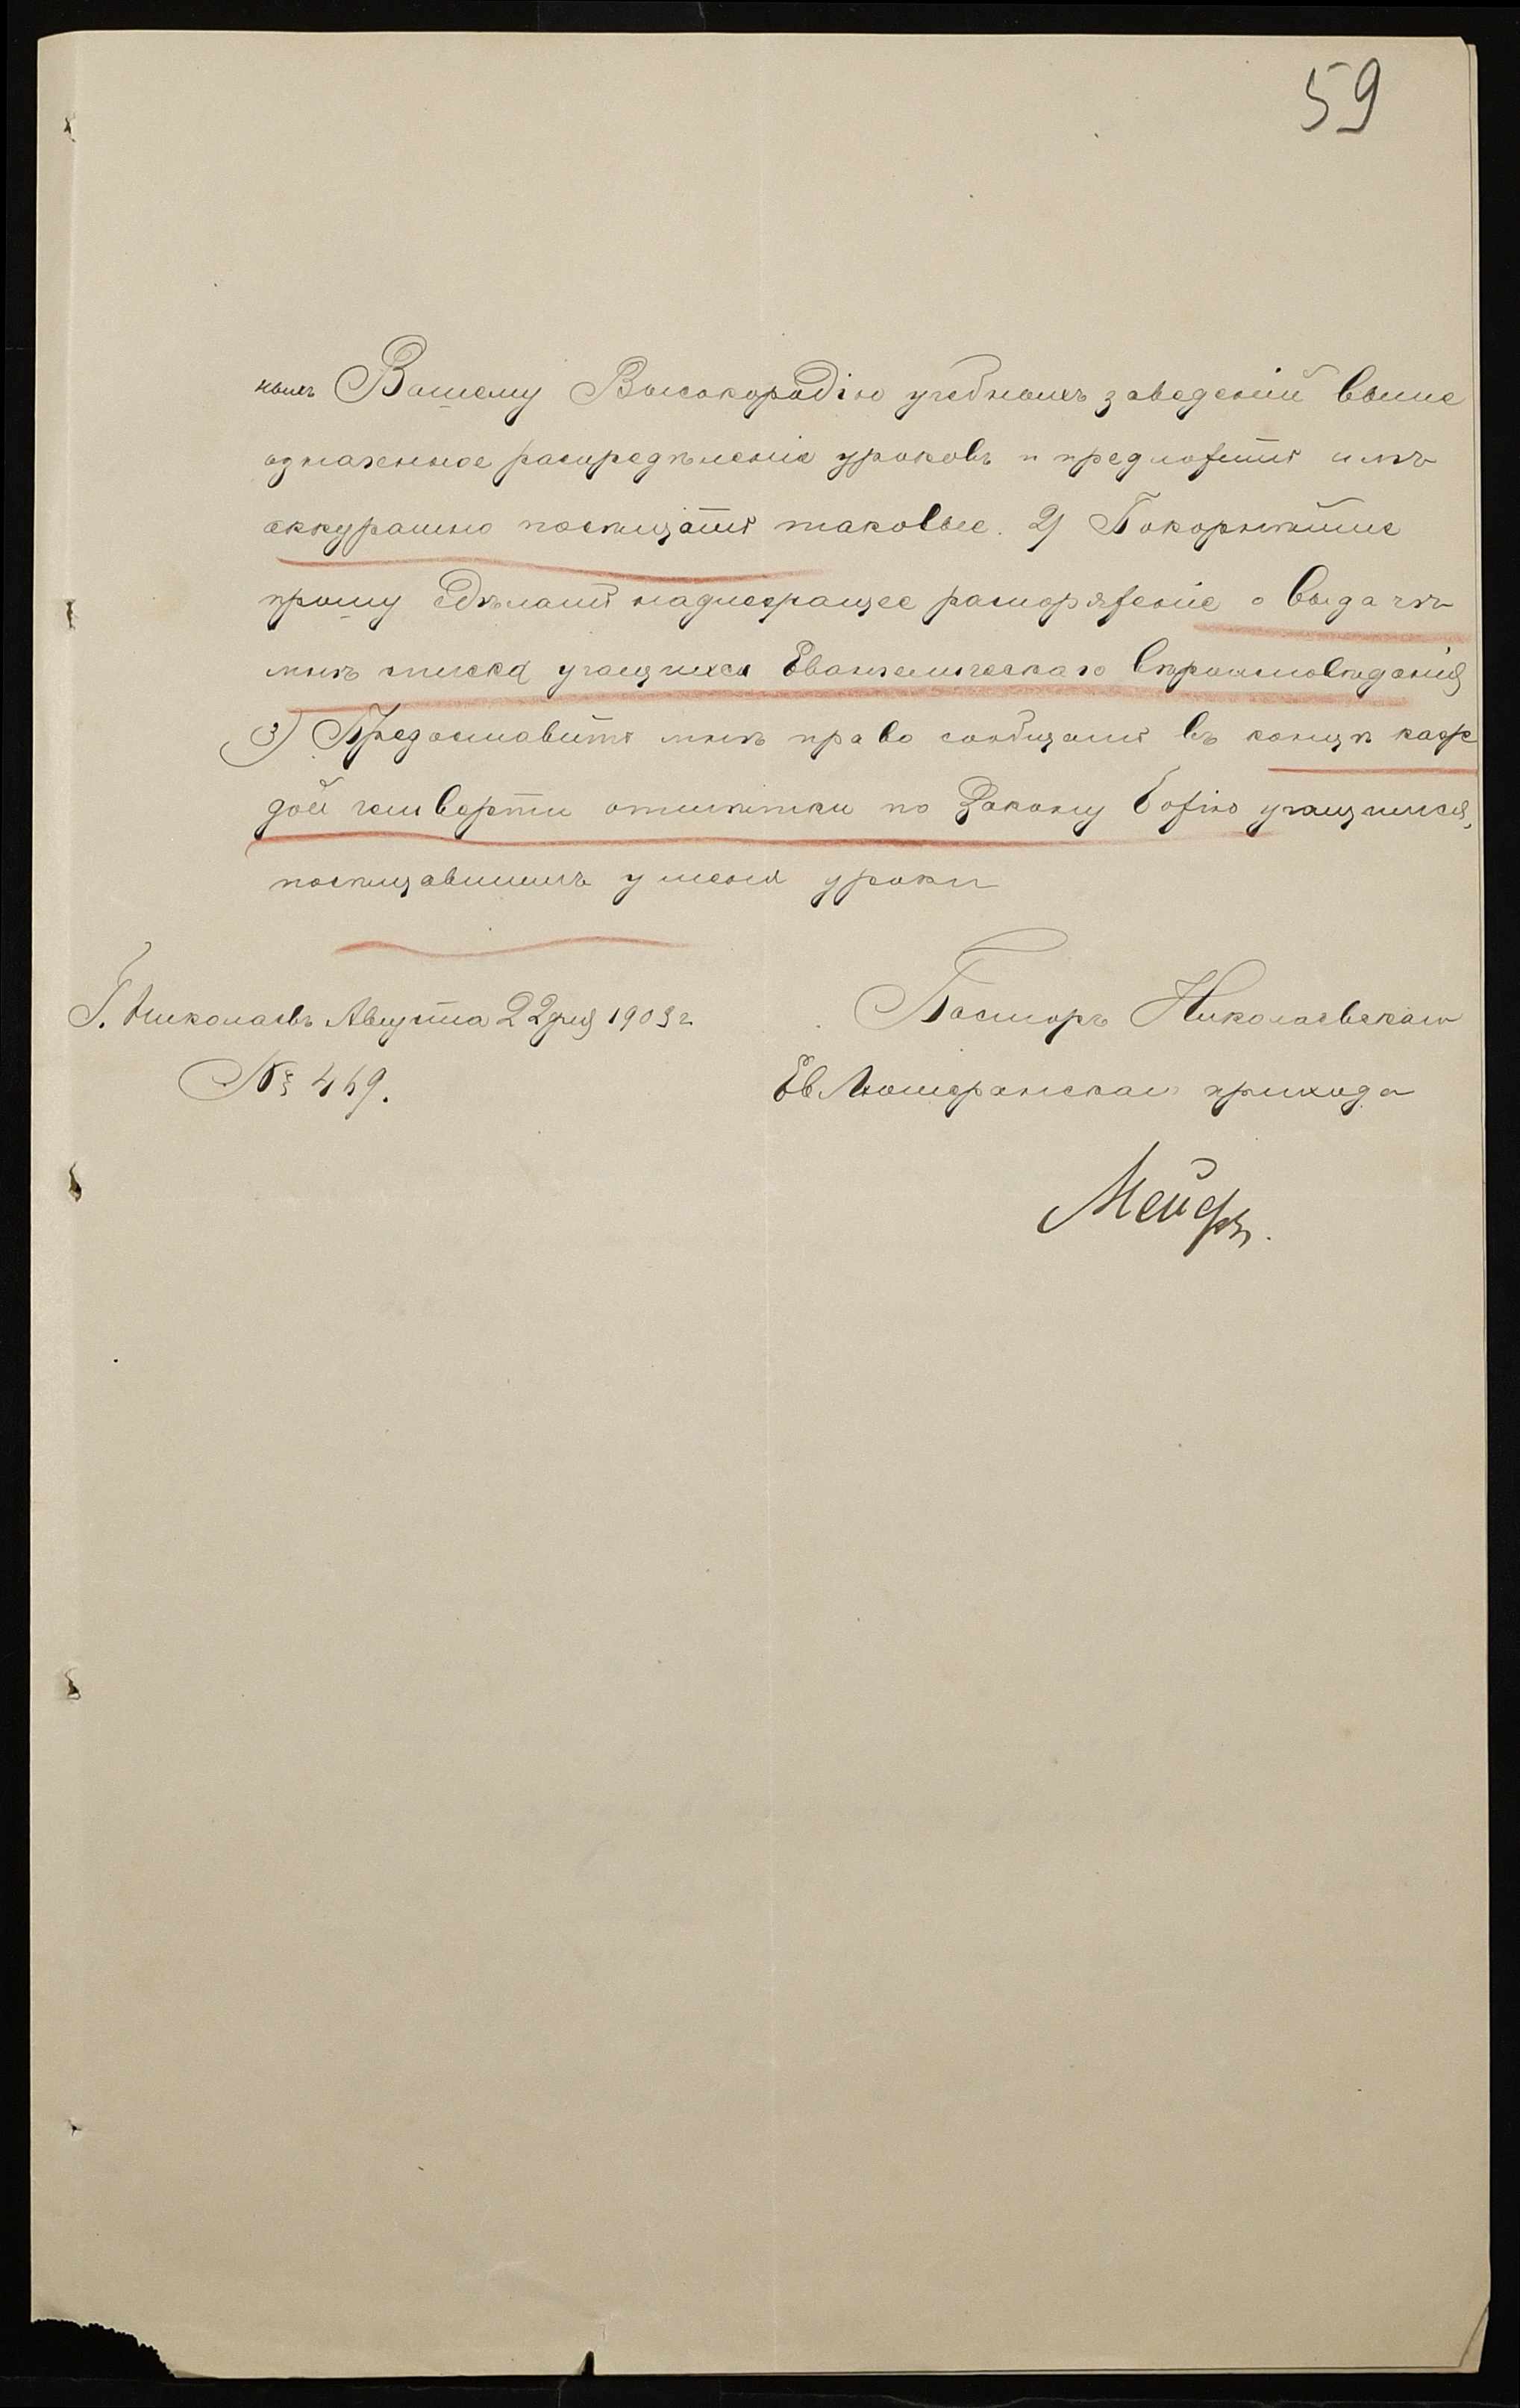 59
ныхъ Вашему Высокородію учебныхъ заведеній выше
означенное распредѣленіе уроковъ и предложить имъ
аккуратно посѣщать таковые. 2) Покорнѣйше
прошу сдѣлать надлежащее распоряженіе о выдачѣ
мнѣ списка учащихся Евангелическаго вѣроисповѣданія
3) Предоставить мнѣ право сообщать въ концѣ каж
дой четверти отмѣтки по Закону Божію учащимся,
посѣщавшимъ у меня уроки
Пасторъ Николаевскаго
Ев Лютеранскаго прихода
Г. Николаевъ Августа 22 дня 1903 г.
№ 469.